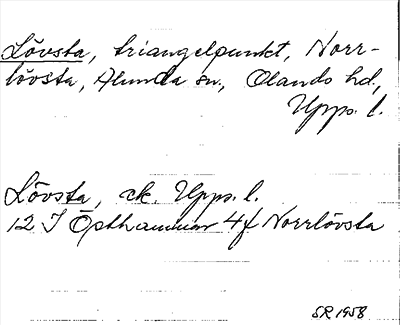 Lövsta, triangelpunkt, Norr-
lövsta, Alunda sn, Olands hd,
Upps. l.
Lövsta, ek. Upps. l.
12 I Östhammar 4f Norrlövsta
SR 1958